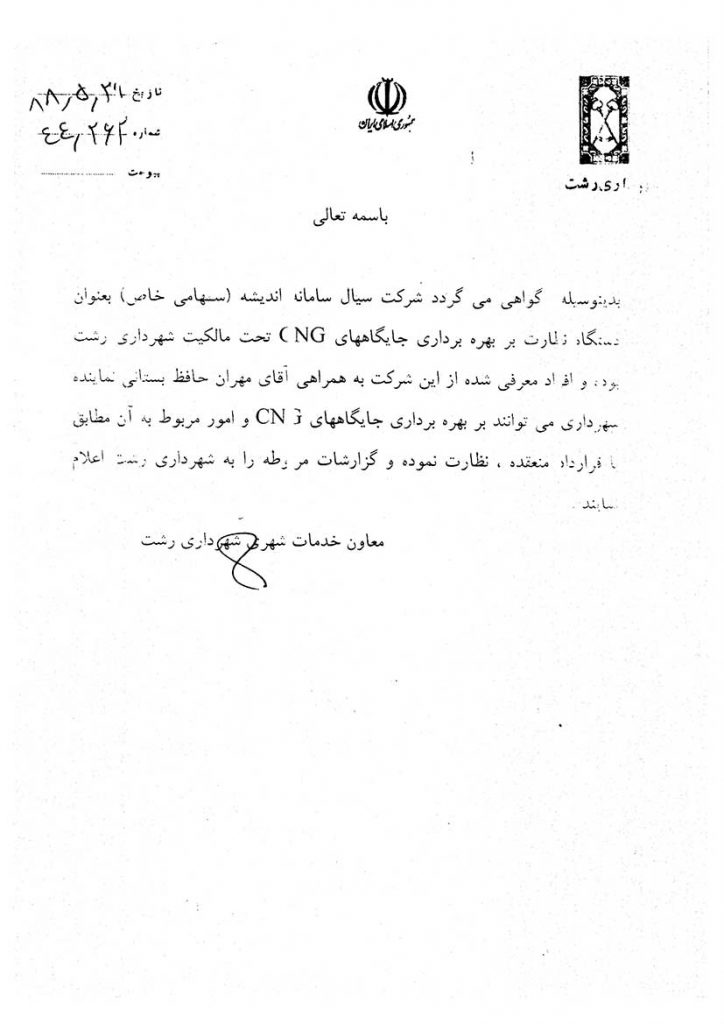 جمهوری اسلامی ایران
تاریخ ۸۸,۵,۳۱
شماره ۴۴,۲۶۲
پیوست
باسمه تعالی
بدینوسیله گواهی می گردد شرکت سیال سامانه اندیشه (سهامی خاص) بعنوان
دستگاه نظارت بر بهره برداری جایگاههای CNG تحت مالکیت شهرداری رشت
بوده و افراد معرفی شده از این شرکت به همراهی آقای مهران حافظ بستانی نماینده
شهرداری می توانند بر بهره برداری جایگاههای CNG و امور مربوط به آن مطابق
با قرارداد منعقده ، نظارت نموده و گزارشات مربوطه را به شهرداری رشت اعلام
نمایند .
معاون خدمات شهری شهرداری رشت